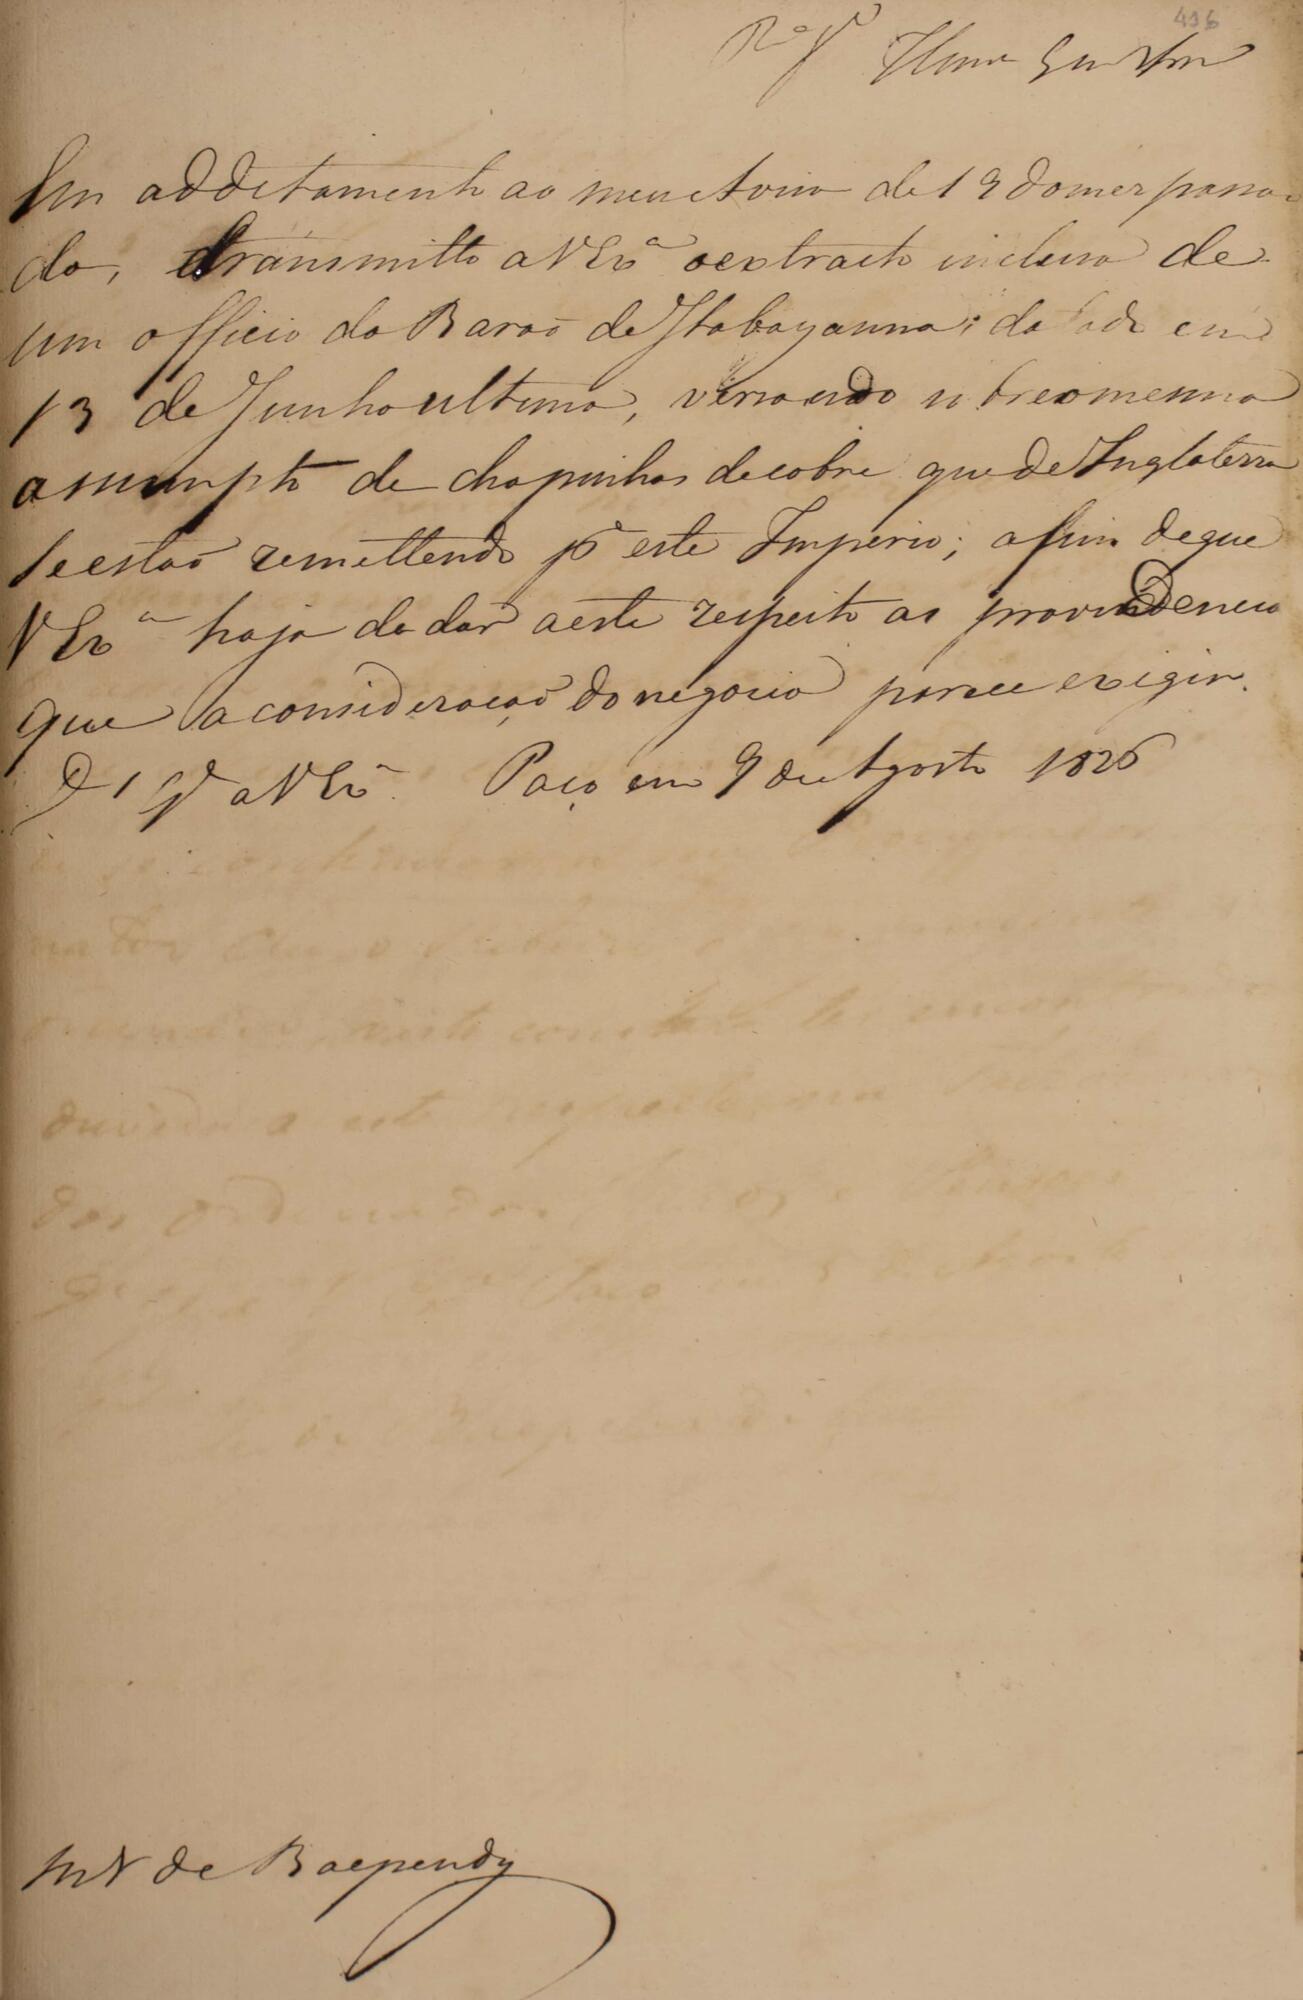 496
R.º g.do Illmo Exmo Snr
Em additamento ao meu Aviso de 19 do mez passa-
do, transmitto a V Exª o extracto incluso de
um officio do Barão de Itabayanna; datado em
13 de Junho ultimo, versando sobre o mesmo
assumpto de chapinhas de cobre que de Inglaterra
se estão remettendo pª este Imperio; afim de que
V Exª haja de dar a este respeito as providencia
que a consideração do negocio parece exigir.
D.s G.de a V Exª. Paço em 9 de Agosto 1826
M V de Baependy